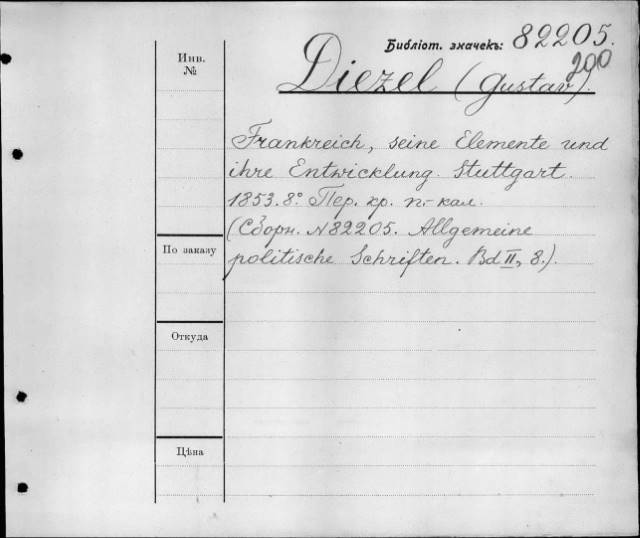 Библіот. значекъ: 82205.
200
Инв.
№
Diezel (Gustav).
Frankreich, seine Elemente und
ihre Entwicklung. Stuttgart.
1853. 8.° Пер. кр. п.-кал.
(Сборн. N 82205. Allgemeine
politische Schriften. Bd II, 8.).
По заказу
Откуда
Цѣна